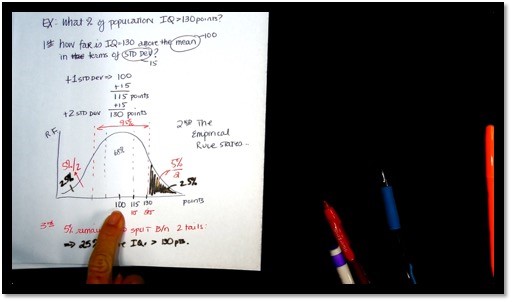 EX: What % of population IQ >130 points?
1st How far is IQ=130 above the mean 100
in terms of STD Dev?
15
+1 STD Dev ⇒ 100
+15
115 points
+15
+2 STD Dev 130 points
95%
R.F.
2nd The
Empirical
Rule states..
68%
5%/2
2.5%
5%/2
2.5%
100 115 130 points
1σ 2σ
3rd 5% split B/n 2 tails:
⇒ IQ > 130 pts.